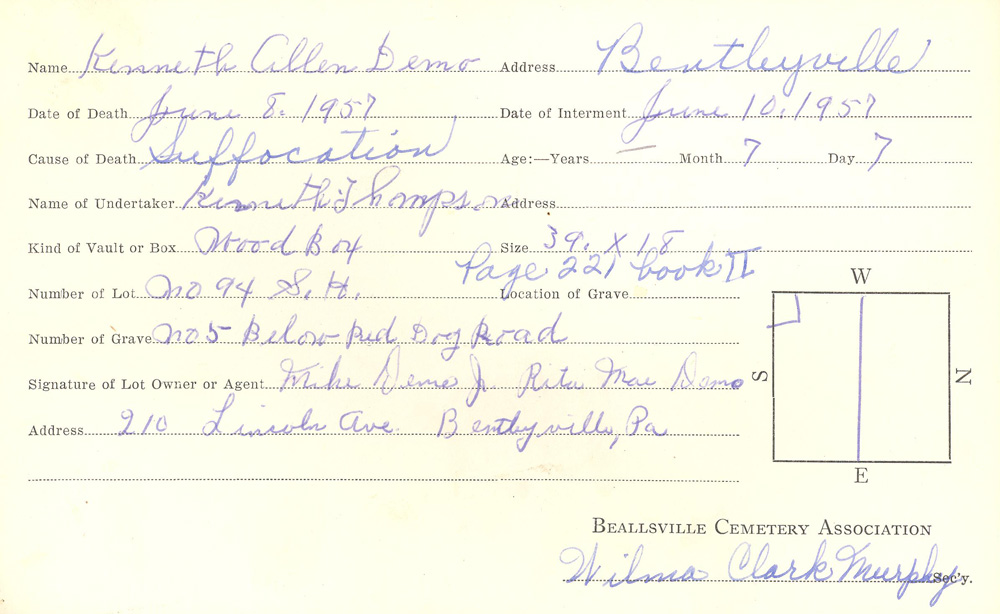 Name Kenneth Allen Demo Address Bentleyville
Date of Death June 8. 1957 Date of Interment June 10. 1957
Cause of Death Suffocation Age:—Years — Month 7 Day 7
Name of Undertaker Kenneth Thompson Address
Kind of Vault or Box Wood Box Size 39. X 18
Page 221 book II
Number of Lot No 94 S. H. Location of Grave
Number of Grave No 5 Below Red Dog Road
Signature of Lot Owner or Agent Mike Demo Jr. Rita Mae Demo
Address 210 Lincoln Ave. Bentleyville, Pa
W
S N
E
BEALLSVILLE CEMETERY ASSOCIATION
Wilma Clark Murphy Sec'y.